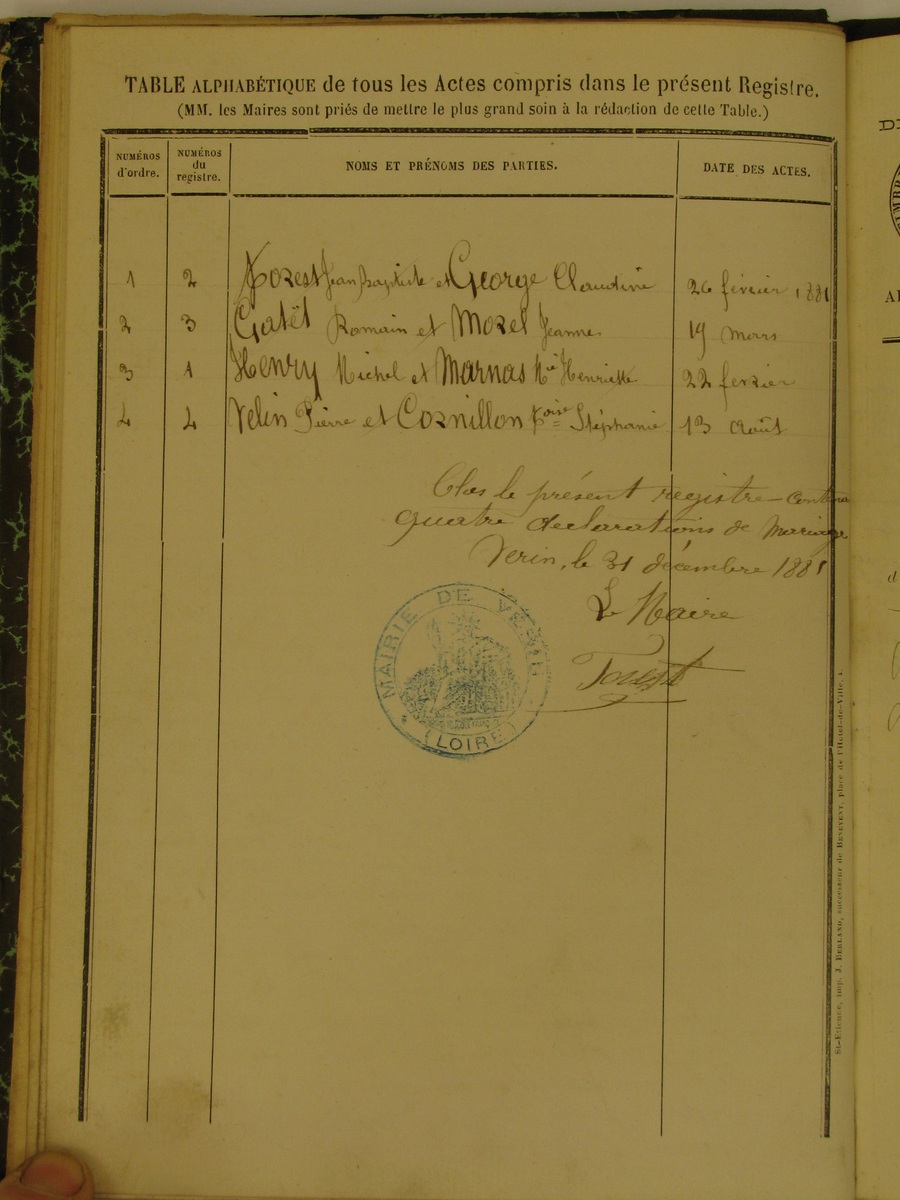 TABLE ALPHABÉTIQUE de tous les Actes compris dans le présent Registre.
(MM. les Maires sont priés de mettre le plus grand soin à la rédaction de cette Table.)
NUMÉROS d'ordre. NUMÉROS du registre. NOMS ET PRÉNOMS DES PARTIES. DATE DES ACTES.
1 2 Forest Jean Baptiste et George Claudine 26 février 1881
2 3 Gatët Romain et Morel Jeanne 19 mars
3 1 Henry Michel et Marnas Mie Henriette 22 fevrier
4 4 Velin Pierre et Cornillon Foise Stéphanie 13 Août
Clos le présent registre contena
quatre declarations de Mariage
Verin, le 31 décembre 1881
Le Maire
Forest
MAIRIE DE VERIN
(LOIRE)
St-Etienne, imp. J. BERLAND, successeur de BENEVENT, place de l'Hotel-de-Ville, 4.